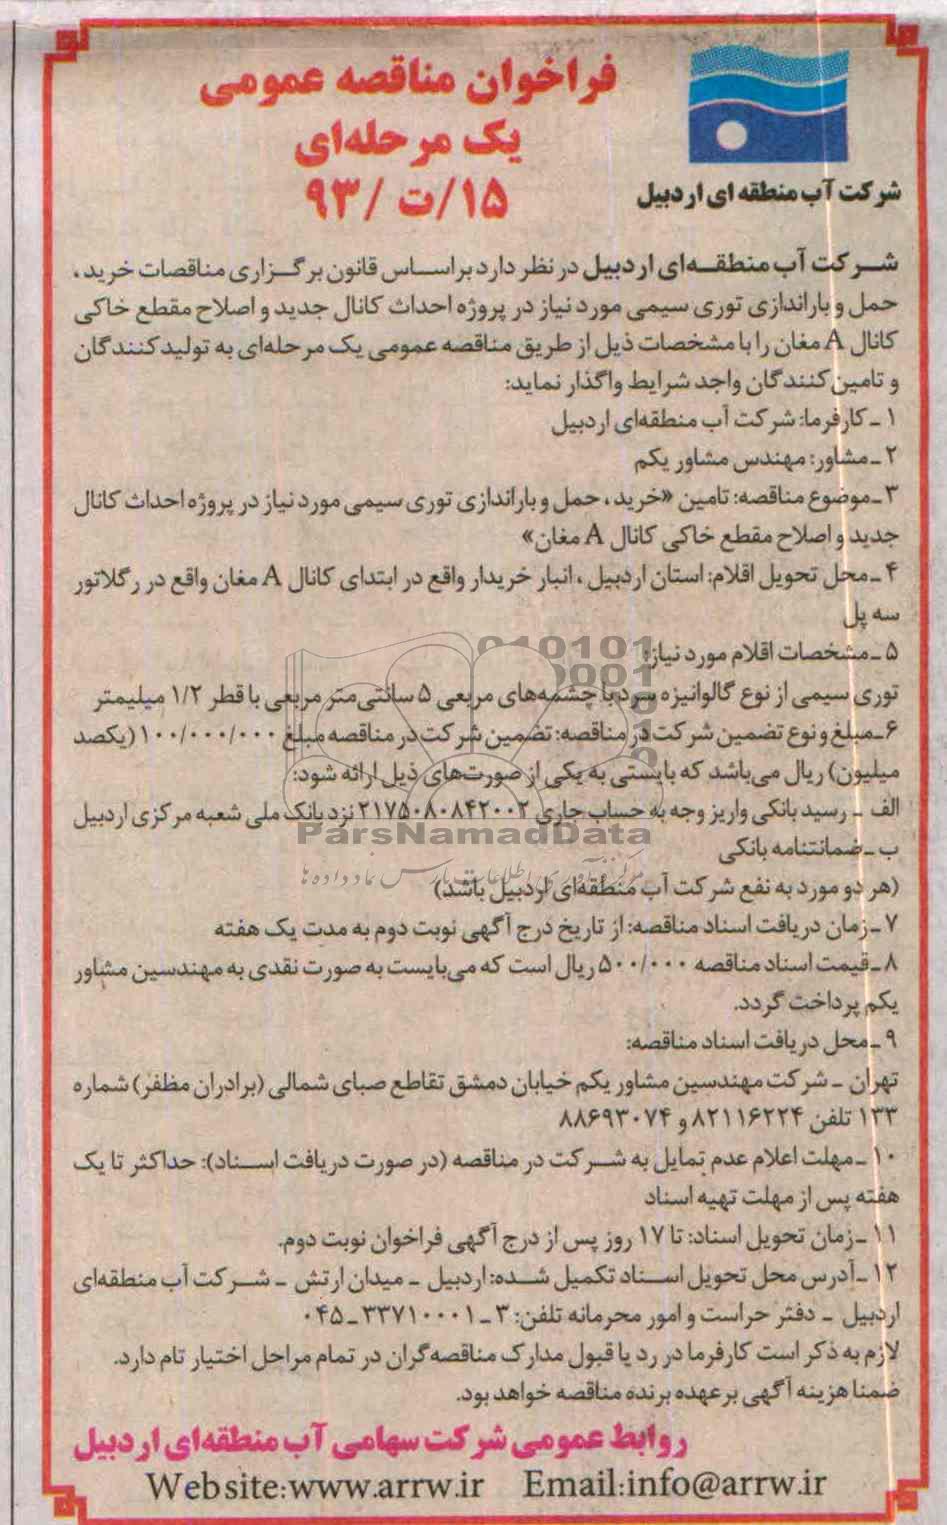 فراخوان مناقصه عمومی
یک مرحله‌ای
۱۵/ت /۹۳
شرکت آب منطقه ای اردبیل
شرکت آب منطقه‌ای اردبیل در نظر دارد براساس قانون برگزاری مناقصات خرید،
حمل و باراندازی توری سیمی مورد نیاز در پروژه احداث کانال جدید و اصلاح مقطع خاکی
کانال A مغان را با مشخصات ذیل از طریق مناقصه عمومی یک مرحله‌ای به تولیدکنندگان
و تامین کنندگان واجد شرایط واگذار نماید:
۱ ـ کارفرما: شرکت آب منطقه‌ای اردبیل
۲ ـ مشاور: مهندس مشاور یکم
۳ ـ موضوع مناقصه: تامین «خرید، حمل و باراندازی توری سیمی مورد نیاز در پروژه احداث کانال
جدید و اصلاح مقطع خاکی کانال A مغان»
۴ ـ محل تحویل اقلام: استان اردبیل، انبار خریدار واقع در ابتدای کانال A مغان واقع در رگلاتور
سه پل
۵ ـ مشخصات اقلام مورد نیاز:
توری سیمی از نوع گالوانیزه سرد با چشمه‌های مربعی ۵ سانتی‌متر مربعی با قطر ۱/۲ میلیمتر
۶ ـ مبلغ و نوع تضمین شرکت در مناقصه: تضمین شرکت در مناقصه مبلغ ۱۰۰/۰۰۰/۰۰۰ (یکصد
میلیون) ریال می‌باشد که بایستی به یکی از صورت‌های ذیل ارائه شود:
الف ـ رسید بانکی واریز وجه به حساب جاری ۲۱۷۵۰۸۰۸۴۲۰۰۲ نزد بانک ملی شعبه مرکزی اردبیل
ب ـ ضمانتنامه بانکی
ParsNamadData
مرکز فرآوری اطلاعات پارس نماد داده ها
(هر دو مورد به نفع شرکت آب منطقه‌ای اردبیل باشد)
۷ ـ زمان دریافت اسناد مناقصه: از تاریخ درج آگهی نوبت دوم به مدت یک هفته
۸ ـ قیمت اسناد مناقصه ۵۰۰/۰۰۰ ریال است که می‌بایست به صورت نقدی به مهندسین مشاور
یکم پرداخت گردد.
۹ ـ محل دریافت اسناد مناقصه:
تهران ـ شرکت مهندسین مشاور یکم خیابان دمشق تقاطع صبای شمالی (برادران مظفر) شماره
۱۳۳ تلفن ۸۲۱۱۶۲۲۴ و ۸۸۶۹۳۰۷۴
۱۰ ـ مهلت اعلام عدم تمایل به شرکت در مناقصه (در صورت دریافت اسناد): حداکثر تا یک
هفته پس از مهلت تهیه اسناد
۱۱ ـ زمان تحویل اسناد: تا ۱۷ روز پس از درج آگهی فراخوان نوبت دوم.
۱۲ ـ آدرس محل تحویل اسناد تکمیل شده: اردبیل ـ میدان ارتش ـ شرکت آب منطقه‌ای
اردبیل ـ دفتر حراست و امور محرمانه تلفن: ۳ ـ ۳۳۷۱۰۰۰۱ ـ ۰۴۵
لازم به ذکر است کارفرما در رد یا قبول مدارک مناقصه‌گران در تمام مراحل اختیار تام دارد.
ضمنا هزینه آگهی برعهده برنده مناقصه خواهد بود.
روابط عمومی شرکت سهامی آب منطقه‌ای اردبیل
Website:www.arrw.ir Email:info@arrw.ir